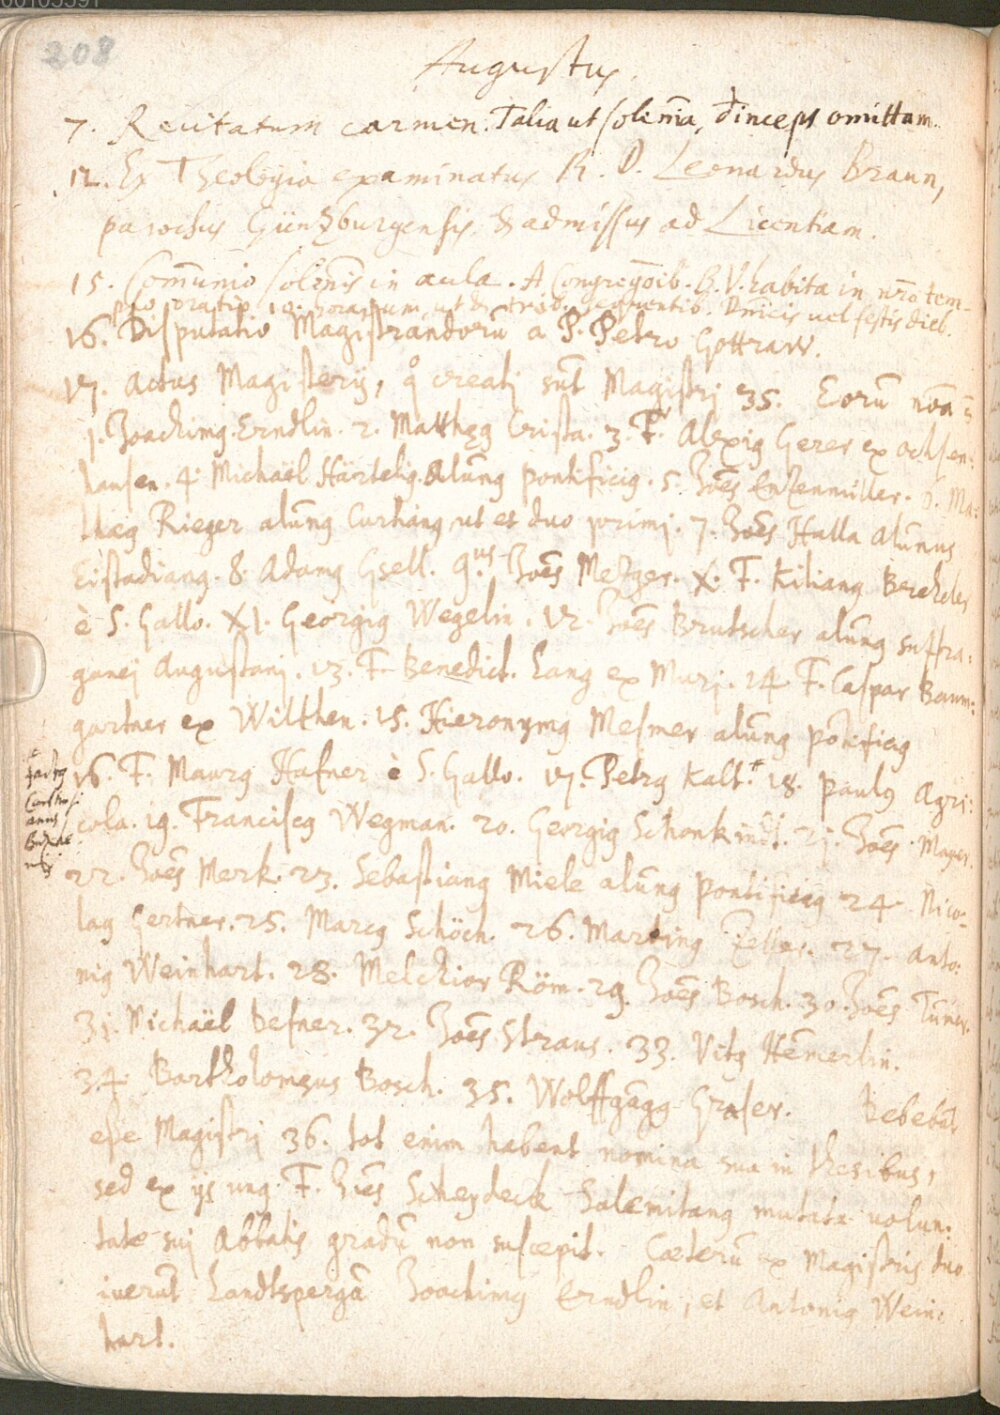 208
Augustus.
7. Recitatum carmen. Talia ut solen̄ia, deinceps omittam.
12. Ex Theologia examinatus R. D. Leonardus Braun,
parochus Güntzburgensis, & admissus ad Licentiam.
15. Com̄unio solen̄is in aula. A Congreg̅oib. B. V. habita in nr̅o tem-
plo oratio 10. horarum, ut & trib. sequentib. Dn̅icis uel festis dieb.
16. Disputatio Magistrandorū a P. Petro Gottraw.
17. Actus Magisterij, q̊ creatj sūt Magistrj 35. Eorū no̅a
1. Joachimꝯ Erndlin. 2. Matthęꝯ Crista. 3. F. Alexiꝯ Gerer ex ochsen:
hausen. 4. Michaël Härtelig. Alūnꝯ pontificiꝯ. 5. Joēs Enzenmüller. 6. Ma:
thæꝯ Rieger alūnꝯ Curhanꝯ ut et duo primj. 7. Joēs Halla Alūnus
Eistadianꝯ. 8. Adamꝯ Gsell. 9.us Joēs Metzger. X. F. Kilianꝯ Berchtler
è S. Gallo. XI. Georgiꝯ Wegelin. 12. Joēs Brutscher alūnꝯ suffra:
ganej Augustanj. 13. F. Benedict. Lang ex Murj. 14. F. Caspar Baum:
gartner ex Wilthen. 15. Hieronymꝯ Mesmer alūnꝯ pōtificiꝯ
16. F. Maurꝯ Hafner è S. Gallo. 17. Petrꝯ Kalt. + 18. Paulꝯ Agri:
cola. 19. Franciscꝯ Wegman. 20. Georgiꝯ Schenk 21. Joēs Mayer.
22. Joēs Merk. 23. Sebastianꝯ Miele alūnꝯ pontificiꝯ 24. Nico:
laꝯ Gertner. 25. Marcꝯ Schöch. 26. Martinꝯ Zeller. 27. Anto:
niꝯ Weinhart. 28. Melchior Röm. 29. Joēs Bosch. 30. Joēs
31. Michaël Befner. 32. Joēs Straus. 33. Vitꝯ Hem̄erlin.
34. Bartholomęus Bosch. 35. Wolffgangꝯ Graser. Debebāt
esse Magistrj 36. tot enim habent nomina sua in thesibus,
sed ex ijs unꝯ F. Joēs Scheydeck Salemitanꝯ mutata uolun:
tate suj Abbatis gradū non suscepit. Cæterū ex Magistris duo
iuerūt Landtspergā Joachimꝯ Erndlin, et Antoniꝯ Wein:
hart.
+
factꝯ
Carthusi
anus
Buxhe